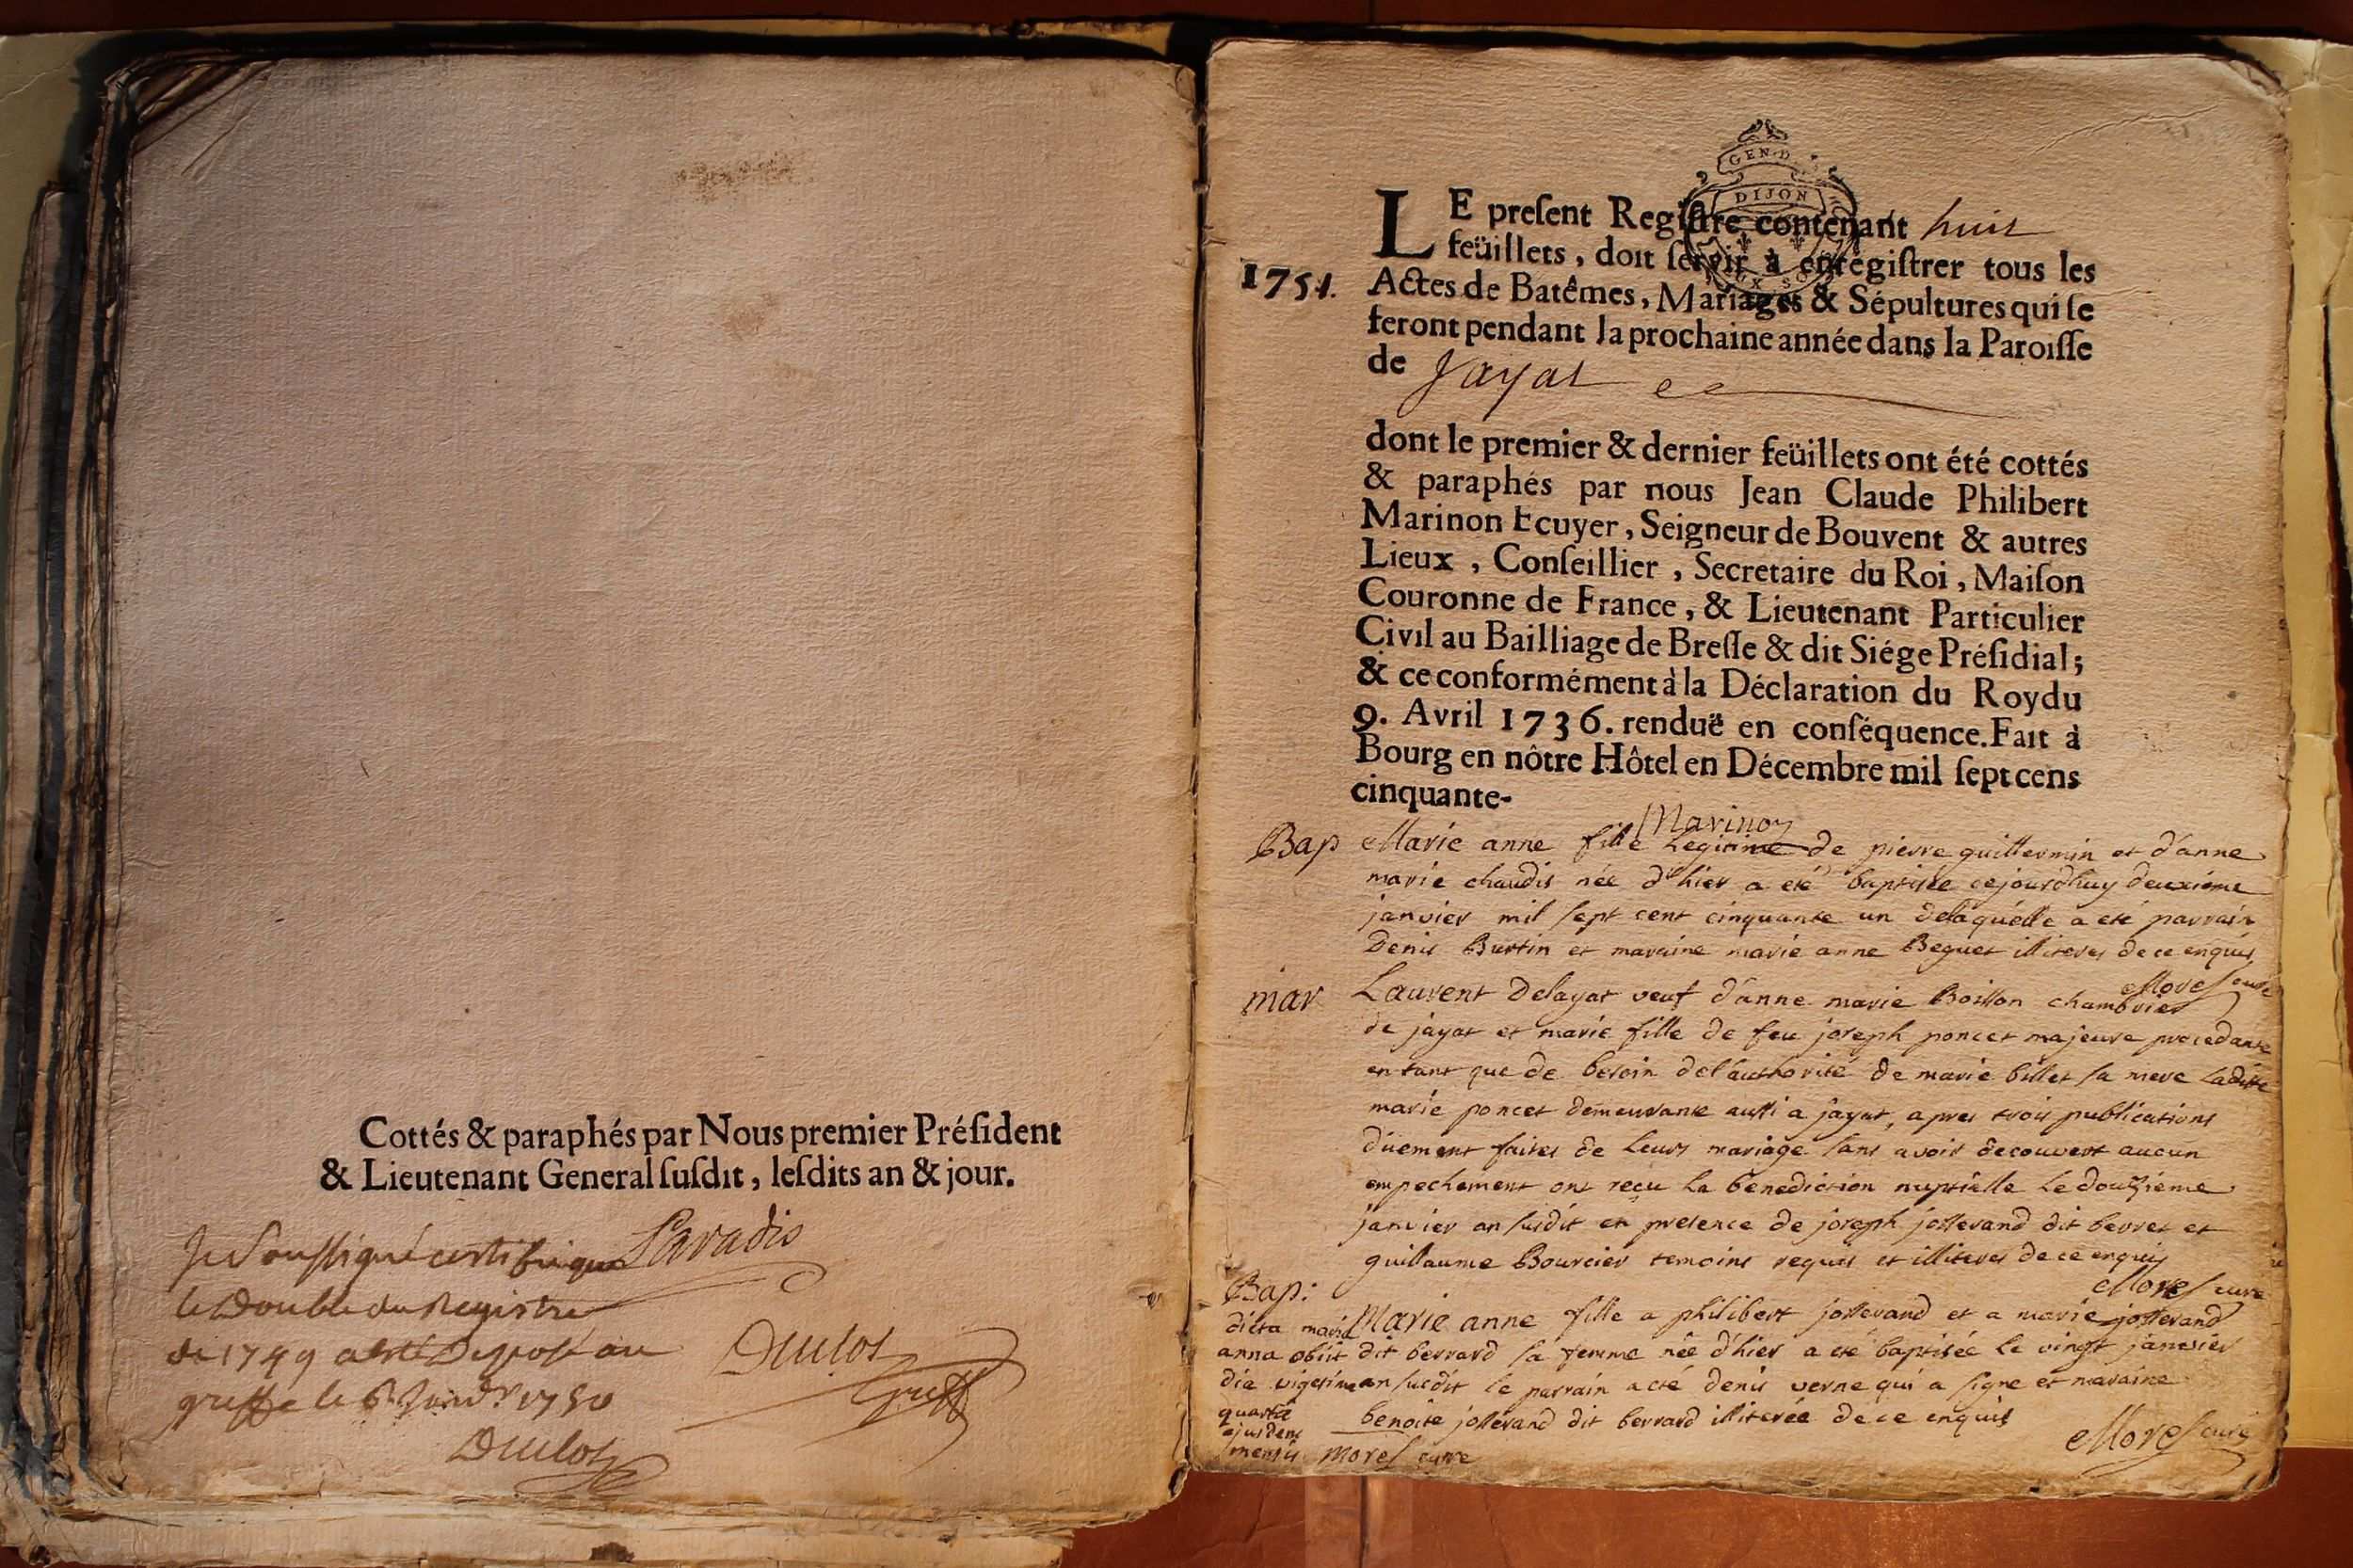 Cottés & paraphés par Nous premier Préſident
& Lieutenant General ſuſdit, leſdits an & jour.
Paradis
Je Soussigné certifie que
le Double du Registre
de 1749 a esté Deposé au
greffe le 6 Janv.r 1750
Dulos
Greff
Dulos
GEN.D
DIJON
LE preſent Regiſtre contenant huit
feüillets, doit ſervir à enrégiſtrer tous les
1751. Actes de Batêmes, Mariages & Sépultures qui ſe
feront pendant la prochaine année dans la Paroiſſe
de Jayat
dont le premier & dernier feüillets ont été cottés
& paraphés par nous Jean Claude Philibert
Marinon Ecuyer, Seigneur de Bouvent & autres
Lieux, Conſeillier, Secretaire du Roi, Maiſon
Couronne de France, & Lieutenant Particulier
Civil au Bailliage de Breſſe & dit Siége Préſidial;
& ce conformément à la Déclaration du Roy du
9. Avril 1736. renduë en conſéquence. Fait à
Bourg en nôtre Hôtel en Décembre mil ſept cens
cinquante-
Marinon
Bap Marie anne fille Legitime de pierre guillermin et d'anne
marie chaudis née d'hier a eté baptisée cejourdhuy deuxiéme
janvier mil sept cent cinquante un delaquelle a eté parrain
Denis Burtin et maraine marie anne Beguet illiteres de ce enquis
Morel curé
mar Laurent Delayat veuf d'anne marie Boisson chambrier
de jayat et marie fille de feu joseph poncet majeure procedante
en tant que de besoin de l'authorité de marie billet sa mere Laditte
marie poncet demeurante aussi a jayat, apres trois publications
düement faites de leurs mariage sans avoir decouvert aucun
empechement ont reçu la benediction nuptialle Le douzieme
janvier an susdit en presence de joseph josserand dit berret et
guillaume Bourcier temoins requis et illiteres de ce enquis
Morel curé
Bap: Marie anne fille a philibert josserand et a marie josserand
dit berrard sa femme née d'hier a eté baptisée le vingt janvier
an susdit le parrain a eté denis verne qui a signe et maraine
benoite josserand dit berrard illiterée de ce enquis
Morel curé
dicta maria
anna obiit
die vigesima
quarta
ejusdem
mensis Morel curé